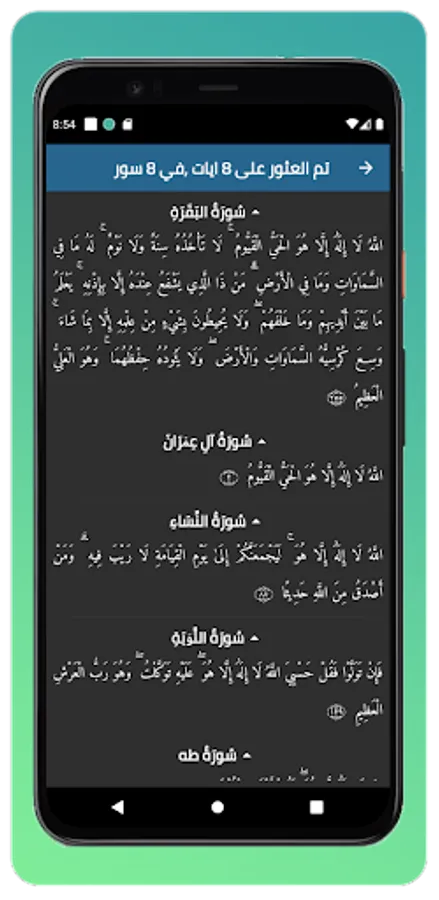 8:54
تم العثور على 8 ايات ,في 8 سور
سُورَةُ البَقَرَةِ
اللَّهُ لَا إِلَٰهَ إِلَّا هُوَ الْحَيُّ الْقَيُّومُ ۚ لَا تَأْخُذُهُ سِنَةٌ وَلَا نَوْمٌ ۚ لَهُ مَا فِي
السَّمَاوَاتِ وَمَا فِي الْأَرْضِ ۗ مَنْ ذَا الَّذِي يَشْفَعُ عِنْدَهُ إِلَّا بِإِذْنِهِ ۚ يَعْلَمُ
مَا بَيْنَ أَيْدِيهِمْ وَمَا خَلْفَهُمْ ۖ وَلَا يُحِيطُونَ بِشَيْءٍ مِنْ عِلْمِهِ إِلَّا بِمَا شَاءَ ۚ
وَسِعَ كُرْسِيُّهُ السَّمَاوَاتِ وَالْأَرْضَ ۖ وَلَا يَئُودُهُ حِفْظُهُمَا ۚ وَهُوَ الْعَلِيُّ
الْعَظِيمُ ﴿٢٥٥﴾
سُورَةُ آلِ عِمۡرَانَ
اللَّهُ لَا إِلَٰهَ إِلَّا هُوَ الْحَيُّ الْقَيُّومُ ﴿٢﴾
سُورَةُ النِّسَاءِ
اللَّهُ لَا إِلَٰهَ إِلَّا هُوَ ۚ لَيَجْمَعَنَّكُمْ إِلَىٰ يَوْمِ الْقِيَامَةِ لَا رَيْبَ فِيهِ ۗ وَمَنْ
أَصْدَقُ مِنَ اللَّهِ حَدِيثًا ﴿٨٧﴾
سُورَةُ التَّوۡبَةِ
فَإِنْ تَوَلَّوْا فَقُلْ حَسْبِيَ اللَّهُ لَا إِلَٰهَ إِلَّا هُوَ ۖ عَلَيْهِ تَوَكَّلْتُ ۖ وَهُوَ رَبُّ الْعَرْشِ
الْعَظِيمِ ﴿١٢٩﴾
سُورَةُ طه